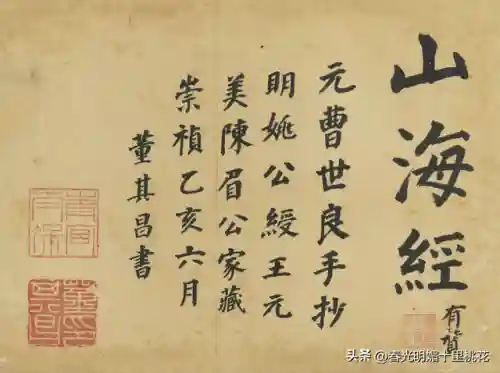 山海經
有賛
元曹世良手抄
明姚公綬王元
美陳眉公家藏
崇禎乙亥六月
董其昌書
头条 @春光明媚十里桃花